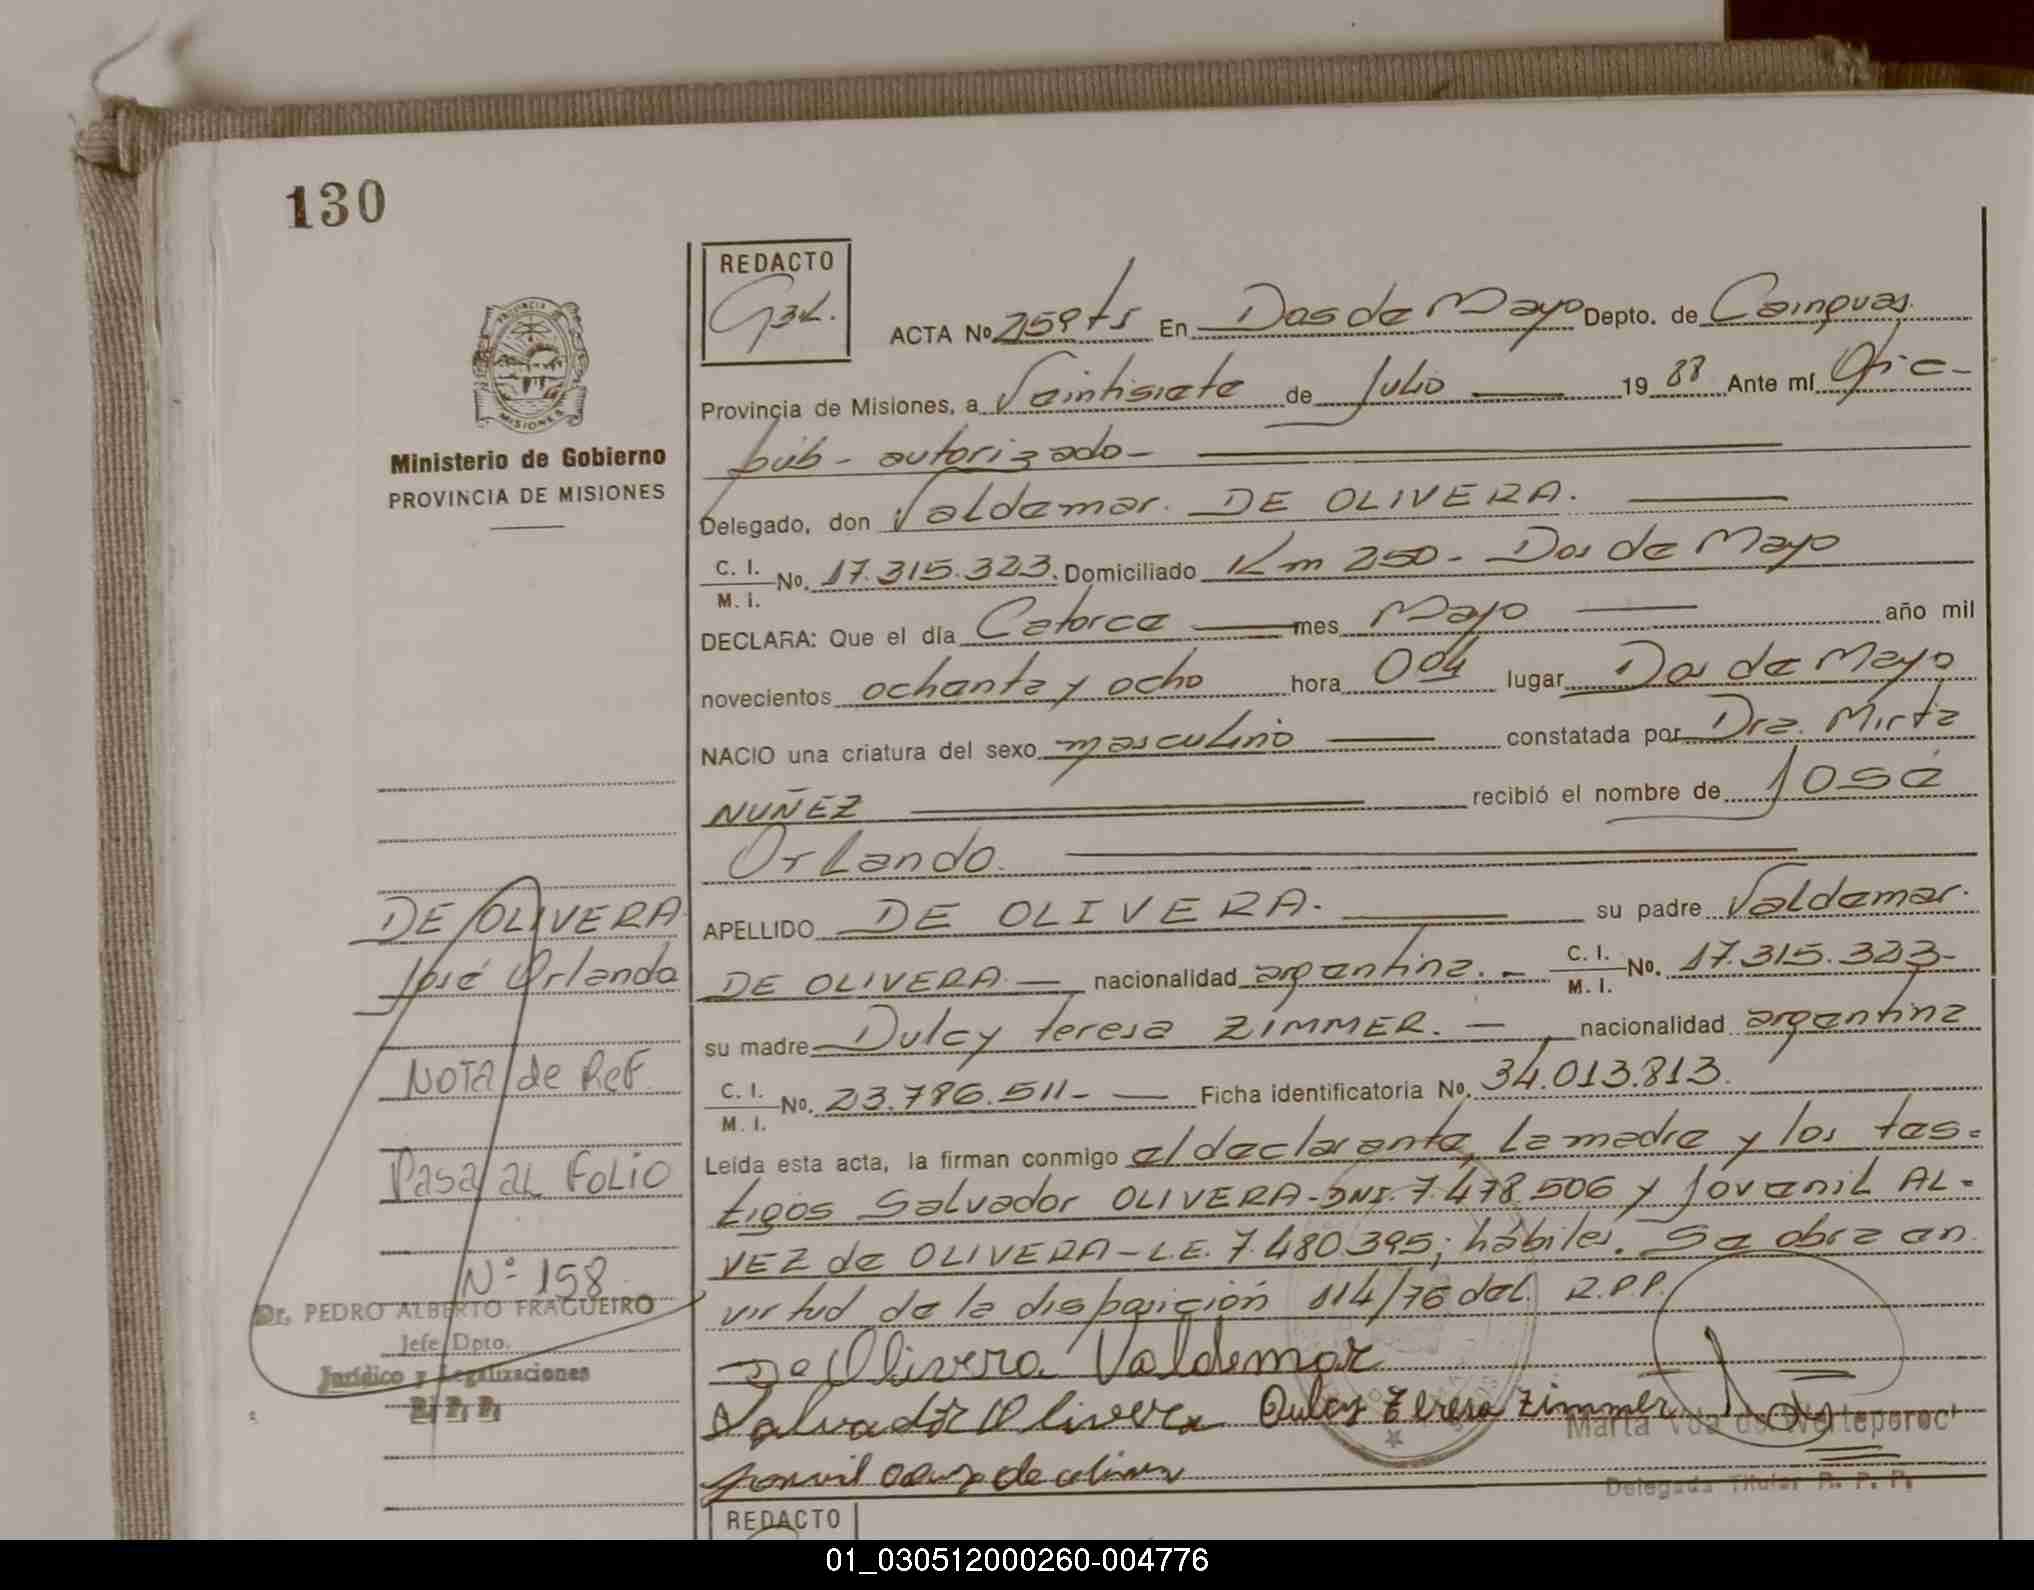 130
REDACTO
PROVINCIA DE
MISIONES
ACTA Nº 259 ts En Dos de Mayo Depto. de Cainguas.
Provincia de Misiones, a Veintisiete de Julio 19 88 Ante mí Ofic-
púb- autorizado-
Ministerio de Gobierno
PROVINCIA DE MISIONES
Delegado, don Valdemar. DE OLIVERA.
C. I.
M. I. No. 17.315.323. Domiciliado Km 250- Dos de Mayo
DECLARA: Que el día Catorce mes Mayo año mil
novecientos ochenta y ocho hora 004 lugar Dos de Mayo
NACIO una criatura del sexo masculino constatada por Dra. Mirta
NUÑEZ recibió el nombre de José
Orlando.
APELLIDO DE OLIVERA. su padre Valdemar.
DE OLIVERA. nacionalidad argentina. C. I.
M. I. No. 17.315.323-
su madre Dulcy teresa ZIMMER. nacionalidad argentina
C. I.
M. I. No. 23.786.511- Ficha identificatoria No. 34.013.813.
Leída esta acta, la firman conmigo el declarante, la madre y los tes=
tigos Salvador OLIVERA-DNI.7.478.506 y Jovenil AL=
VEZ de OLIVERA-L.E. 7.480.395; hábiles. Se obra en
virtud de la disposición 114/76 del R.P.P.
De Olivera Valdemar
Salvador Olivera Dulcy Teresa Zimmer
Marta Vda de
Delegada Titular R. P. P.
DE OLIVERA
José Orlando
NOTA de Ref.
Pasa al FOLIO
Nº 158
Dr. PEDRO ALBERTO FRAGUEIRO
Jefe Dpto.
Jurídico y Legalizaciones
R. P. P.
REDACTO
01_030512000260-004776